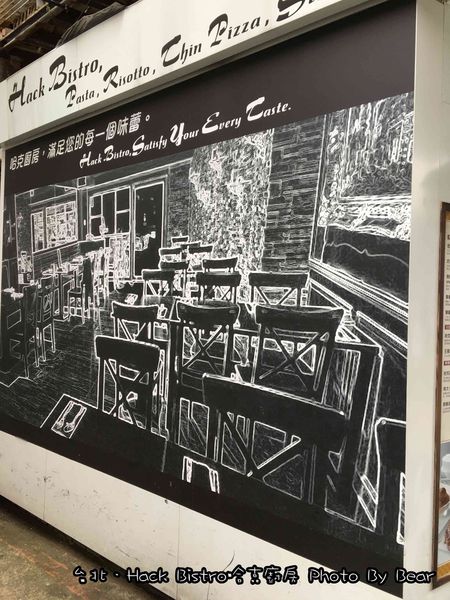 Hack Bistro,
Pasta, Risotto, Thin Pizza,
哈克廚房，滿足您的每一個味蕾。
Hack Bistro, Satisfy Your Every Taste.
台北·Hack Bistro哈克廚房 Photo By Bear